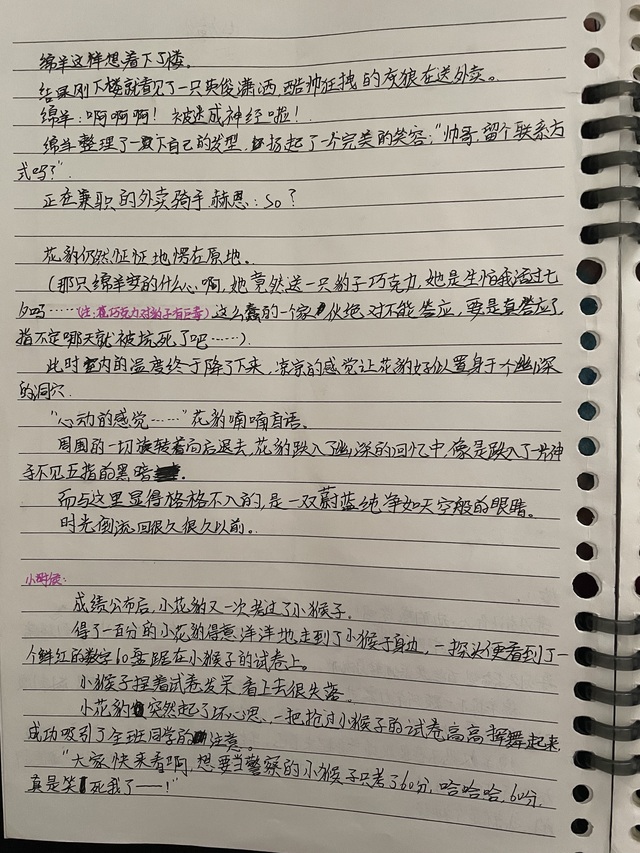 绵羊这样想着下了楼。
结果刚下楼就看见了一只英俊潇洒,酷帅狂拽的灰狼在送外卖。
绵羊:啊啊啊!被迷成神经啦!
绵羊整理了一下自己的发型,扬起了一个完美的笑容:“帅哥,留个联系方
式吗?”
正在兼职的外卖骑手赫思:so?
花豹仍然怔怔地愣在原地。
(那只绵羊安的什么心啊,她竟然送一只豹子巧克力,她是生怕我活过七
夕吗……(注:巧克力对豹子有毒)这么蠢的一个家伙绝对不能答应,要是真答应了
指不定哪天就被坑死了吧……)
此时室内的温度终于降了下来,凉凉的感觉让花豹好似置身于一个幽深
的洞穴.
“心动的感觉……”花豹喃喃自语。
周围的一切旋转着向后退去,花豹跌入了幽深的回忆中,像是跌入了一片伸
手不见五指的黑暗.
而与这里显得格格不入的,是一双蔚蓝纯净如天空般的眼睛。
时光倒流回很久很久以前。
小时候:
成绩公布后,小花豹又一次考过了小猴子.
得了一百分的小花豹得意洋洋地走到了小猴子身边,一探头便看到了一
个鲜红的数字60盘踞在小猴子的试卷上。
小猴子捏着试卷发呆,看上去很失落.
小花豹突然起了坏心思,一把抢过小猴子的试卷高高挥舞起来
成功吸引了全班同学的注意.
“大家快来看啊,想要当警察的小猴子只考了60分,哈哈哈,60分,
真是笑死我了——!”